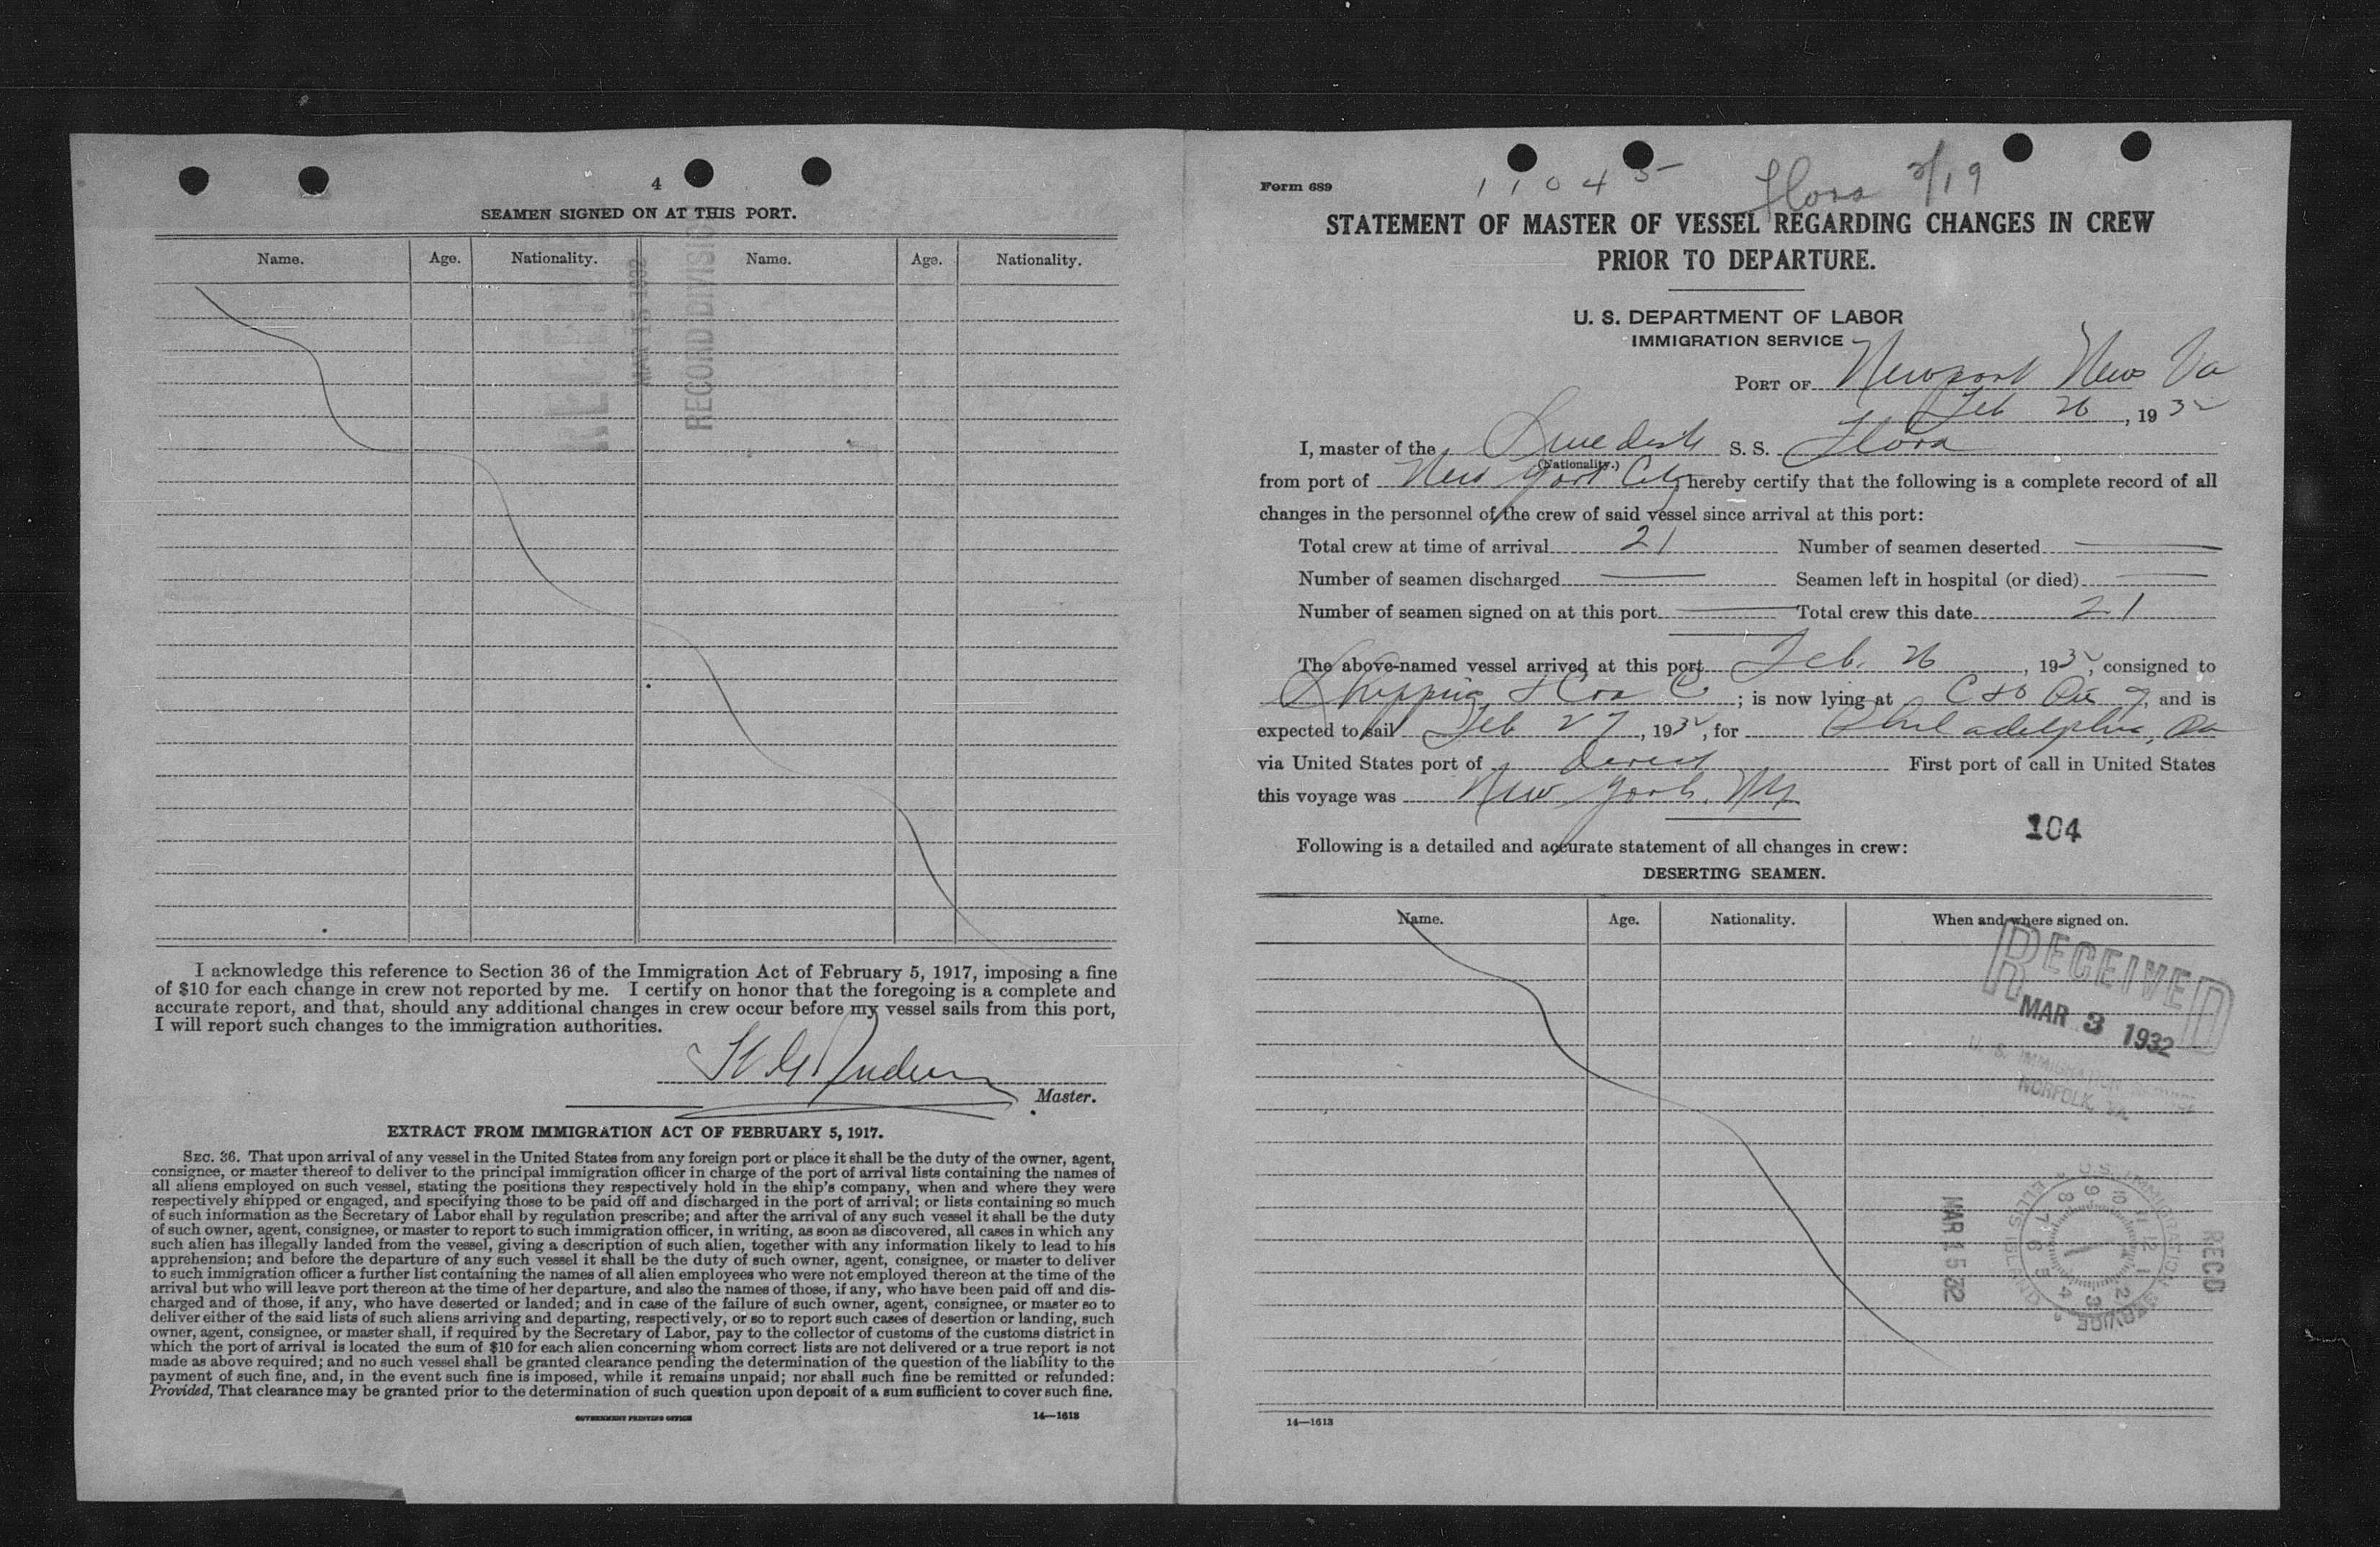 4
SEAMEN SIGNED ON AT THIS PORT.
Name. Age. Nationality. Name. Age. Nationality.
RECORD DIVISION
I acknowledge this reference to Section 36 of the Immigration Act of February 5, 1917, imposing a fine
of $10 for each change in crew not reported by me. I certify on honor that the foregoing is a complete and
accurate report, and that, should any additional changes in crew occur before my vessel sails from this port,
I will report such changes to the immigration authorities.
Master.
EXTRACT FROM IMMIGRATION ACT OF FEBRUARY 5, 1917.
SEC. 36. That upon arrival of any vessel in the United States from any foreign port or place it shall be the duty of the owner, agent,
consignee, or master thereof to deliver to the principal immigration officer in charge of the port of arrival lists containing the names of
all aliens employed on such vessel, stating the positions they respectively hold in the ship's company, when and where they were
respectively shipped or engaged, and specifying those to be paid off and discharged in the port of arrival; or lists containing so much
of such information as the Secretary of Labor shall by regulation prescribe; and after the arrival of any such vessel it shall be the duty
of such owner, agent, consignee, or master to report to such immigration officer, in writing, as soon as discovered, all cases in which any
such alien has illegally landed from the vessel, giving a description of such alien, together with any information likely to lead to his
apprehension; and before the departure of any such vessel it shall be the duty of such owner, agent, consignee, or master to deliver
to such immigration officer a further list containing the names of all alien employees who were not employed thereon at the time of the
arrival but who will leave port thereon at the time of her departure, and also the names of those, if any, who have been paid off and dis-
charged and of those, if any, who have deserted or landed; and in case of the failure of such owner, agent, consignee, or master so to
deliver either of the said lists of such aliens arriving and departing, respectively, or so to report such cases of desertion or landing, such
owner, agent, consignee, or master shall, if required by the Secretary of Labor, pay to the collector of customs of the customs district in
which the port of arrival is located the sum of $10 for each alien concerning whom correct lists are not delivered or a true report is not
made as above required; and no such vessel shall be granted clearance pending the determination of the question of the liability to the
payment of such fine, and, in the event such fine is imposed, while it remains unpaid; nor shall such fine be remitted or refunded:
Provided, That clearance may be granted prior to the determination of such question upon deposit of a sum sufficient to cover such fine.
GOVERNMENT PRINTING OFFICE 14—1613
Form 689 11045 Flora 2/19
STATEMENT OF MASTER OF VESSEL REGARDING CHANGES IN CREW
PRIOR TO DEPARTURE.
U. S. DEPARTMENT OF LABOR
IMMIGRATION SERVICE
PORT OF Newport News Va
Feb 26, 1932
I, master of the Swedish S. S. Flora
(Nationality.)
from port of New York City hereby certify that the following is a complete record of all
changes in the personnel of the crew of said vessel since arrival at this port:
Total crew at time of arrival 21 Number of seamen deserted —
Number of seamen discharged — Seamen left in hospital (or died) —
Number of seamen signed on at this port — Total crew this date 21
The above-named vessel arrived at this port Feb. 26, 1932, consigned to
Shipping & Coal C; is now lying at C & O Pier 9, and is
expected to sail Feb 27, 1932, for Philadelphia, Pa
via United States port of direct First port of call in United States
this voyage was New York, NY
104
Following is a detailed and accurate statement of all changes in crew:
DESERTING SEAMEN.
Name. Age. Nationality. When and where signed on.
RECEIVED
MAR 3 1932
U. S. IMMIGRATION SERVICE
NORFOLK, VA.
RECD
U.S. IMMIGRATION SERVICE
ELLIS ISLAND
9 10 11 12 1 2 3 4 5 6 7 8
MAR 15 32
14—1613